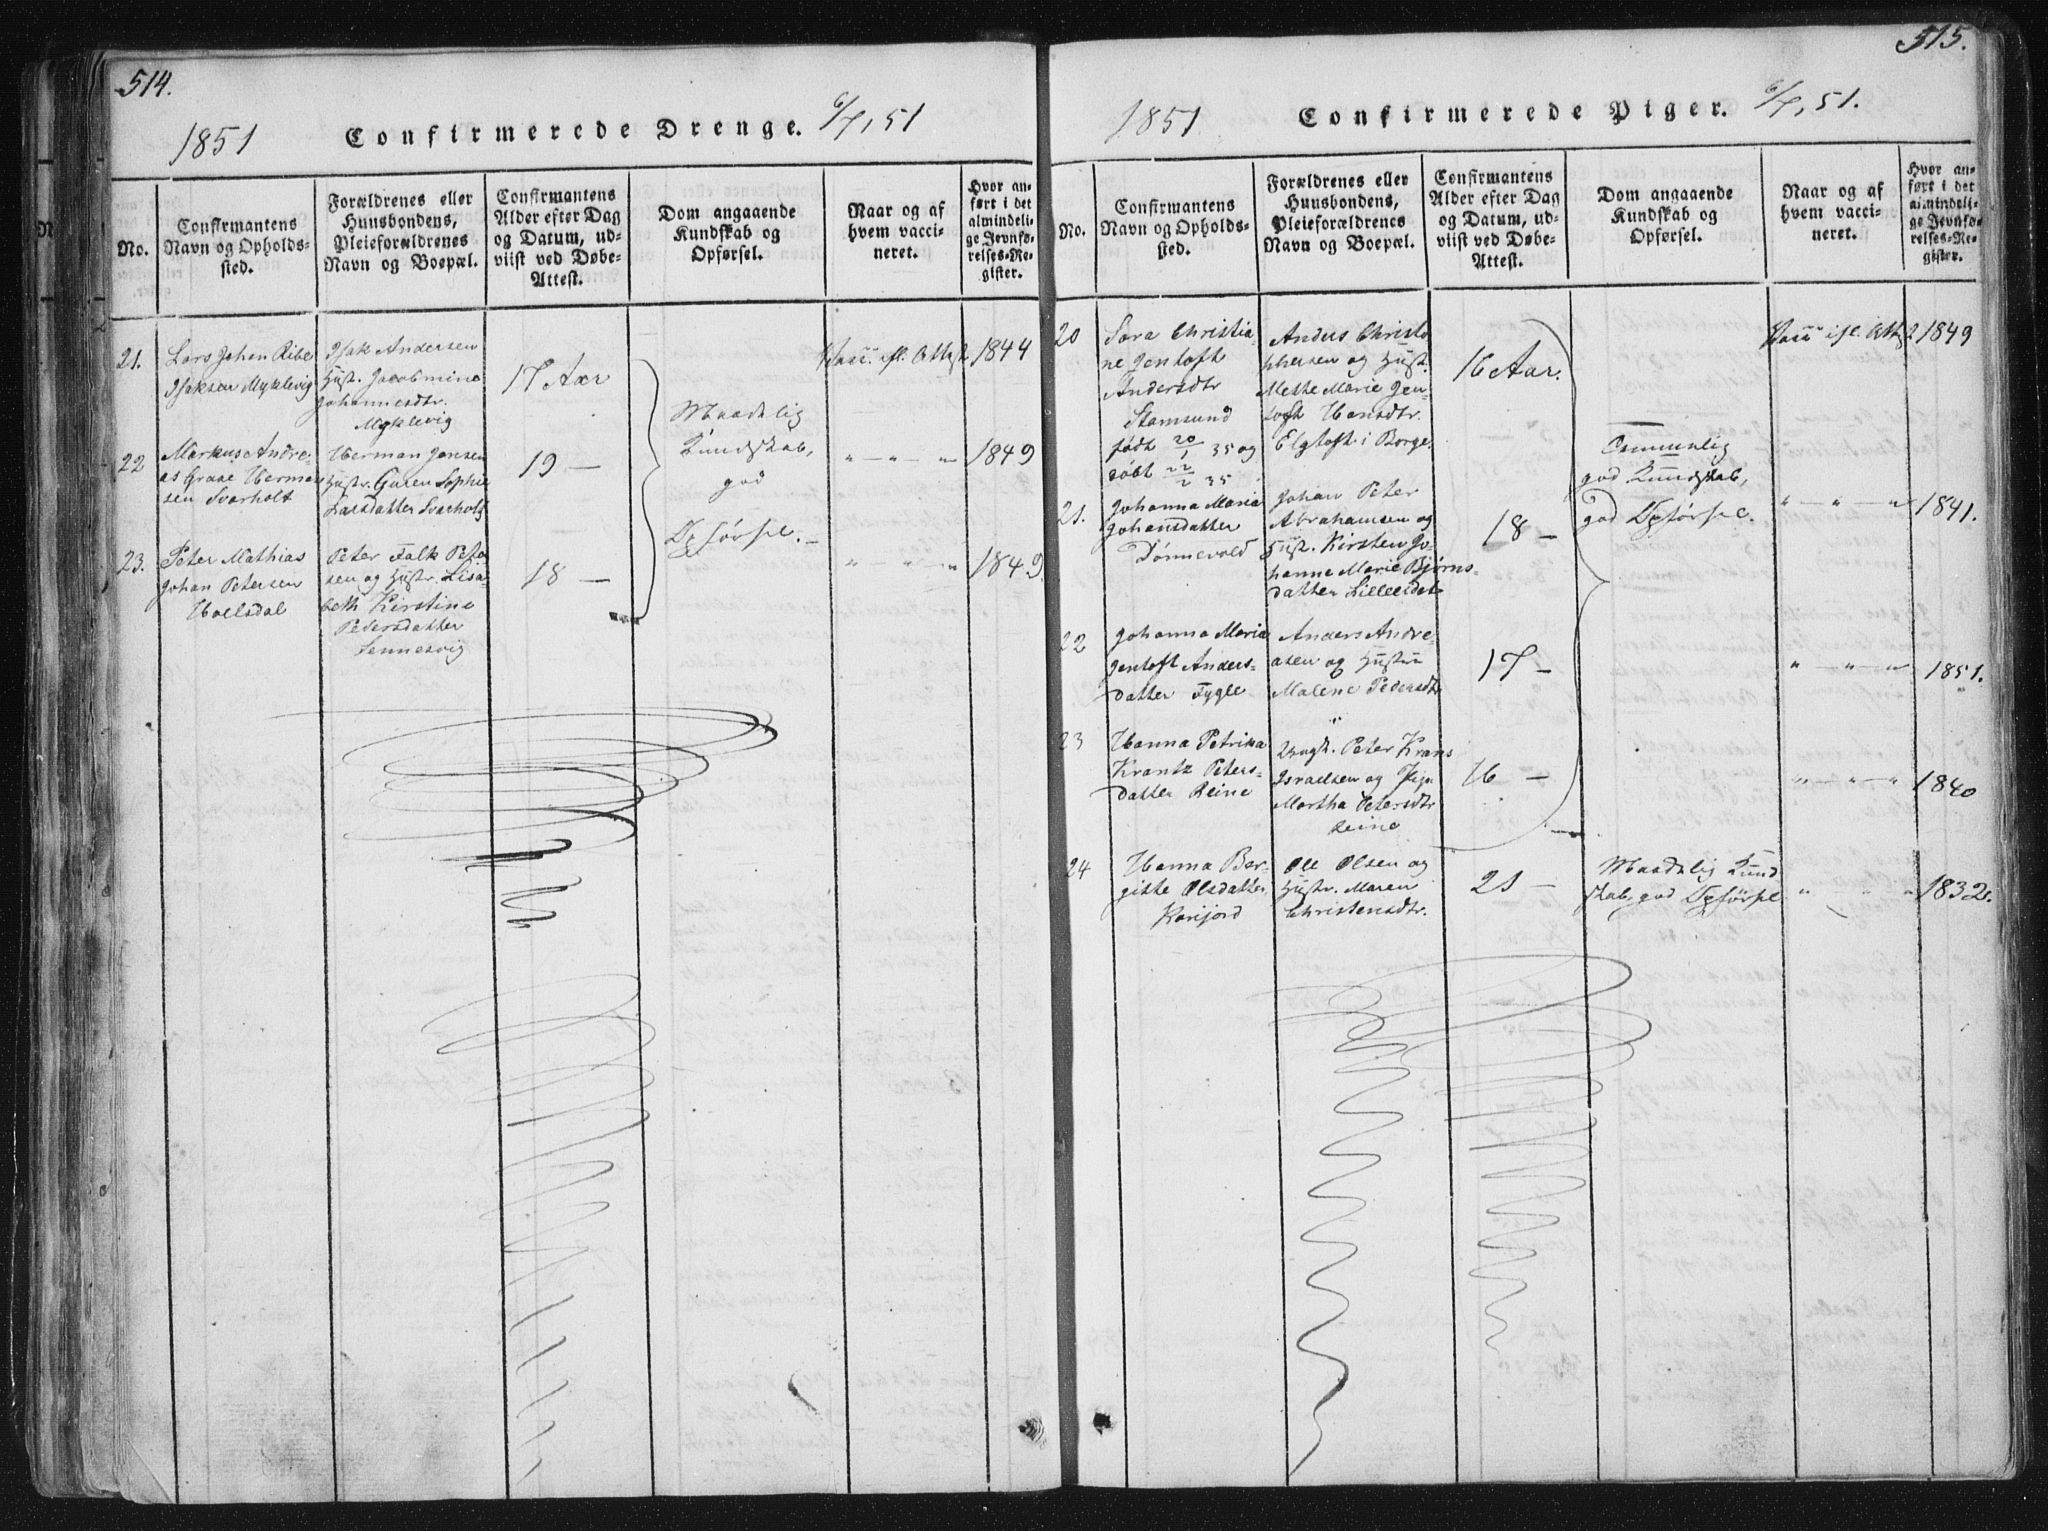 514.
1851 Confirmerede Drenge. 6/7, 51
No.
Confirmantens
Navn og Opholds-
sted.
Forældrenes eller
Huusbondens,
Pleieforældrenes
Navn og Boepæl.
Confirmantens
Alder efter Dag
og Datum, ud-
viist ved Døbe-
Attest.
Dom angaaende
Kundskab og
Opførsel.
Naar og af
hvem vacci-
neret.
Hvor an-
ført i det
almindeli-
ge Jevnfø-
relses-Re-
gister.
21.
Lars Johan Ribe
Isaksen Myklevig
Isak Andersen
Hust. Jacobmine
Johannesdtr.
Myklevig
17 Aar
1844
22
Markus Andre-
as Graae Herman
sen Svarholt
Herman Jensen
Hustr. Guren Sophie
Larsdatter Svarholt
19 —
" — " — "
1849
23.
Peter Mathias
Johan Petersen
Holsdal
Peter Falk Peter
sen og Hustr. Lisa
beth Kirstine
Pedersdatter
Sennesvig
18 —
" — " — "
1849.
Maadelig
Kundskab,
god
Opførsel.
515.
1851 Confirmerede Piger. 6/7, 51.
No.
Confirmantens
Navn og Opholds-
sted.
Forældrenes eller
Huusbondens,
Pleieforældrenes
Navn og Boepæl.
Confirmantens
Alder efter Dag
og Datum, ud-
viist ved Døbe-
Attest.
Dom angaaende
Kundskab og
Opførsel.
Naar og af
hvem vacci-
neret.
Hvor an-
ført i det
almindeli-
ge Jevnfø-
relses-Re-
gister.
20
Sara Christia-
ne Jentoft
Andersdtr
Stamsund
født 20/1 35 og
døbt 22/2 35
Anders Christo
phersen og Hust.
Mette Marie Jen-
toft Hansdtr.
Elgtoft i Borge.
16 Aar.
1849
21.
Johanna Maria
Johansdatter
Dønnevold
Johan Peter
Abrahamsen og
Hust. Kirsten Jo-
hanne Marie Bjørns-
datter Lilleeidet
18 —
" — " — "
1841.
22
Johanna Maria
Jentoft Anders-
datter Fygle
Anders Andre-
asen og Hustru
Malene Pedersdtr
"
17 —
" — " — "
1851.
23
Hanna Petrika
Krantz Peters-
datter Reine
Ungk. Peter Krans
Israelsen og Pige
Martha Petersdtr
Reine
16 —
" — " — "
1840
god Kundskab,
god Opførsel.
24
Hanna Ber-
gitte Olsdatter
Karijord
Ole Olsen og
Hustr. Maren
Christensdtr.
21 —
Maadelig Kund
skab, god Opførsel
" " "
1832.